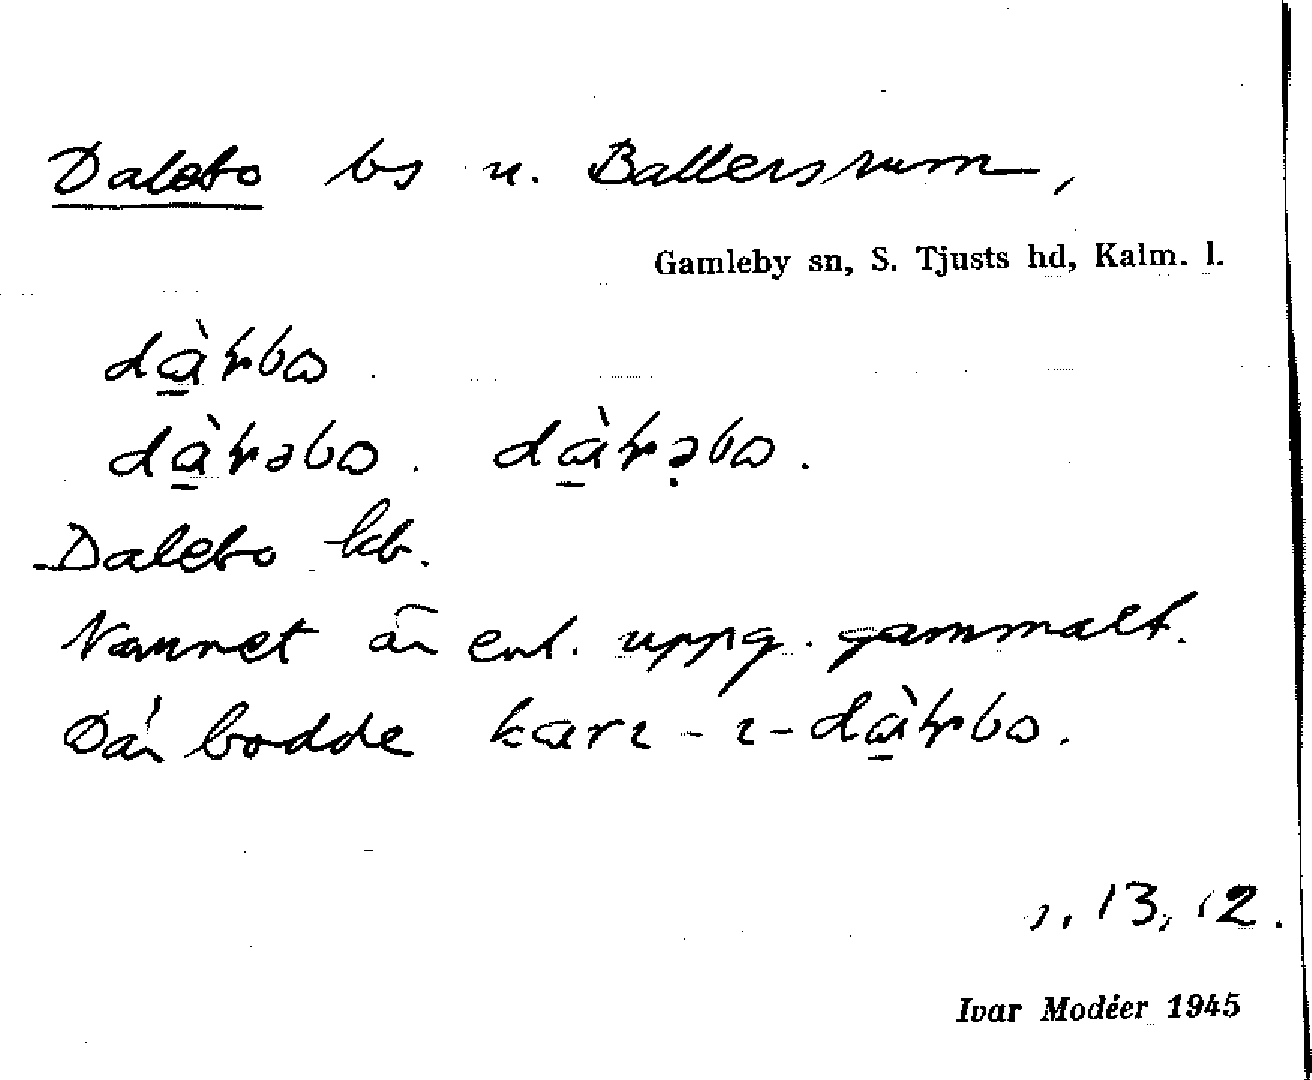 Dalebo bs u. Ballersrum,
Gamleby sn, S. Tjusts hd, Kalm. l.
dàɽbo.
dàɽəbo. dàɽə̣bo.
Dalebo kb.
Namnet är enl. uppg. gammalt.
Där bodde karı-ı-dàɽbo.
s. 13, 12.
Ivar Modéer 1945